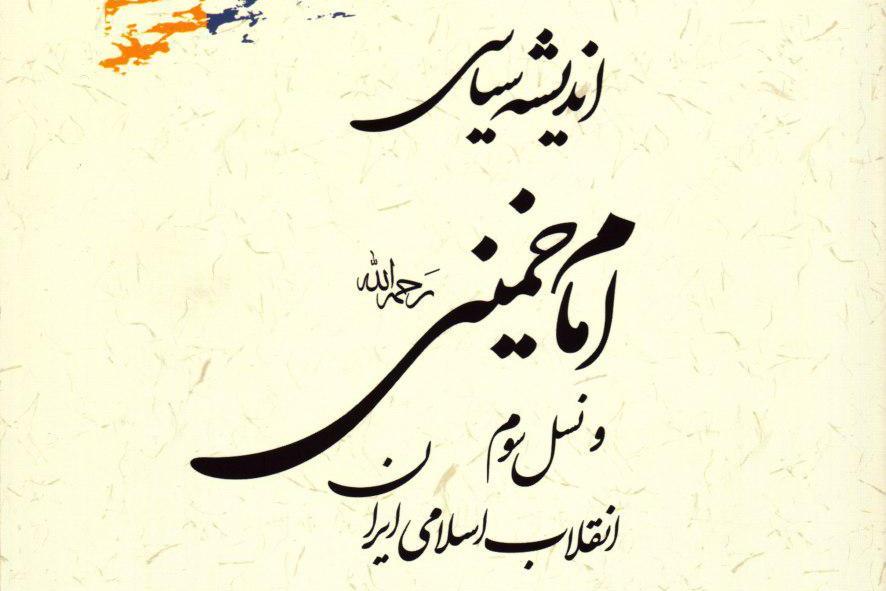 اندیشه سیاسی
امام خمینی رحمه الله
و نسل سوم
انقلاب اسلامی ایران